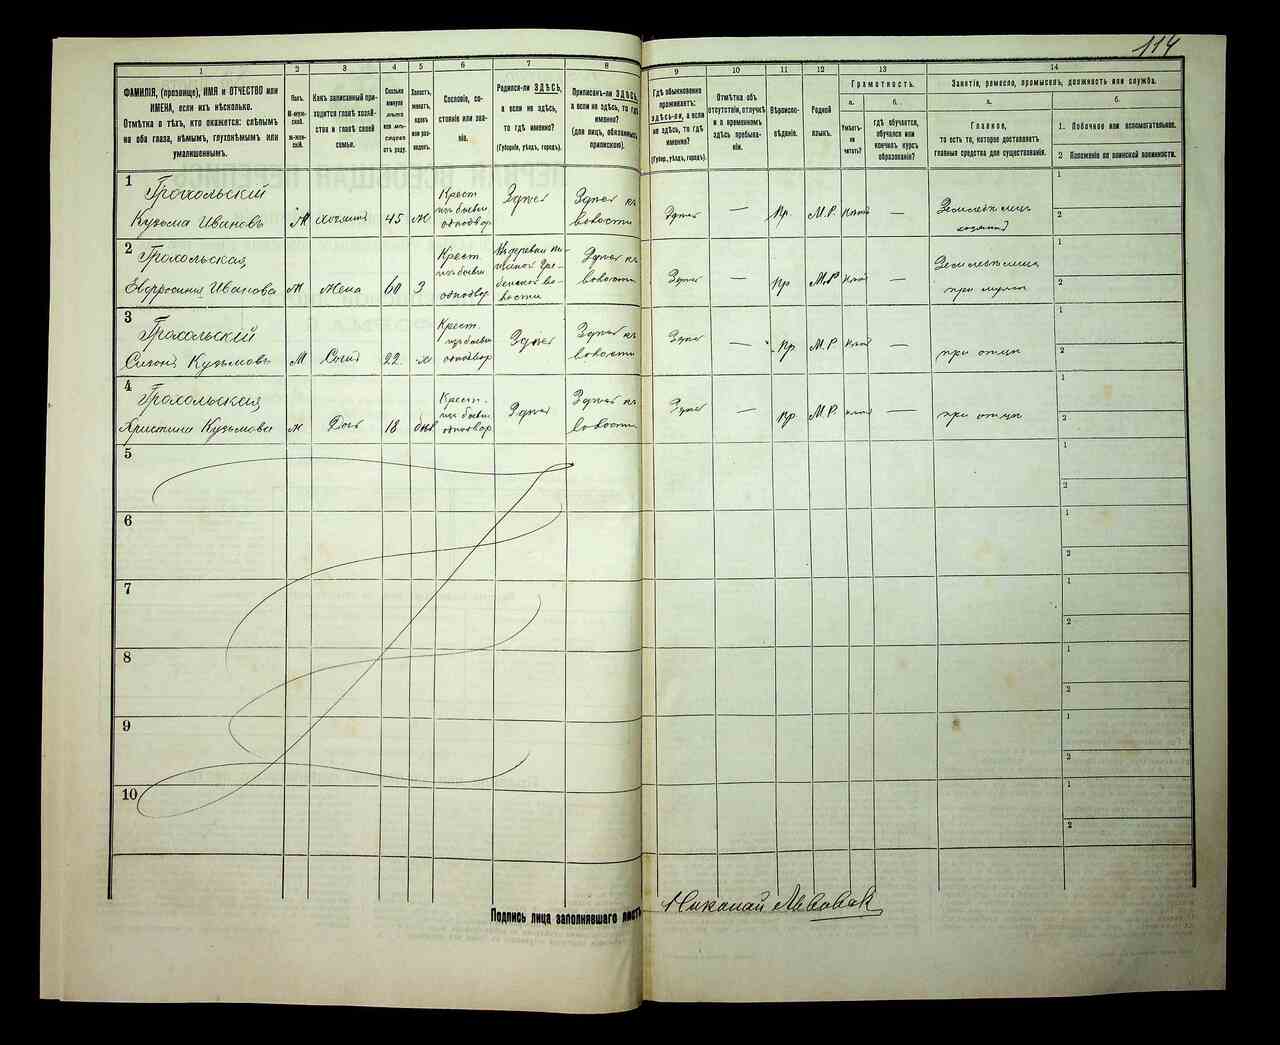 114
1
2
3
4
5
6
7
8
9
10
11
12
13
14
ФАМИЛІЯ, (прозвище), ИМЯ и ОТЧЕСТВО или
ИМЕНА, если ихъ нѣсколько.
Отмѣтка о тѣхъ, кто окажется: слѣпымъ
на оба глаза, нѣмымъ, глухонѣмымъ или
умалишеннымъ.
Полъ.
М-муж-
ской.
ж-жен-
скій.
Какъ записанный при-
ходится главѣ хозяй-
ства и главѣ своей
семьи.
Сколько
минуло
лѣтъ
или мѣ-
сяцевъ
отъ роду.
Холостъ,
женатъ,
вдовъ
или раз-
веденъ.
Сословіе, со-
стояніе или зва-
ніе.
Родился-ли ЗДѢСЬ,
а если не здѣсь,
то гдѣ именно?
(Губернія, уѣздъ, городъ).
Приписанъ-ли ЗДѢСЬ,
а если не здѣсь, то гдѣ
именно?
(для лицъ, обязанныхъ
припискою).
Гдѣ обыкновенно
проживаетъ:
здѣсь-ли, а если
не здѣсь, то гдѣ
именно?
(Губер., уѣздъ, городъ).
Отмѣтка объ
отсутствіи, отлучкѣ
и о временномъ
здѣсь пребыва-
ніи.
Вѣроиспо-
вѣданіе.
Родной
языкъ.
Грамотность.
а.
б.
Умѣетъ-
ли
читать?
гдѣ обучается,
обучался или
кончилъ курсъ
образованія?
Занятіе, ремесло, промыселъ, должность или служба.
а.
б.
Главное,
то есть то, которое доставляетъ
главныя средства для существованія.
1. Побочное или вспомогательное.
2 Положеніе по воинской повинности.
1
Прохольскій
Кузьма Ивановъ
М
хозяинъ
45
ж
Крест
изъ бывш
однодвор
Здѣсь
Здѣсь къ
волости
Здѣсь
—
Пр.
М.Р.
—
Земледѣлецъ
хозяинъ
1
2
2
Прохольская,
Евфросинія Иванова
жена
60
З
Крест
изъ бывш
однодвор
Здѣсь къ
волости
Здѣсь
—
Пр
М.Р
—
при мужѣ
1
2
3
Прохольскій
Кузьмовъ
М
Сынъ
22
х
Крест.
изъ бывш
однодвор
Здѣсь
Здѣсь къ
волости
Здѣсь
—
Пр.
М.Р
—
при отцѣ
1
2
4
Прохольская,
Христина Кузьмова
ж
Дочь
18
Крест.
изъ бывш
однодвор
Здѣсь
Здѣсь къ
волости
Здѣсь
—
Пр.
М.Р.
—
при отцѣ
1
2
5
1
2
6
1
2
7
1
2
8
1
2
9
1
2
10
1
2
Подпись лица заполнявшаго листъ
Николай